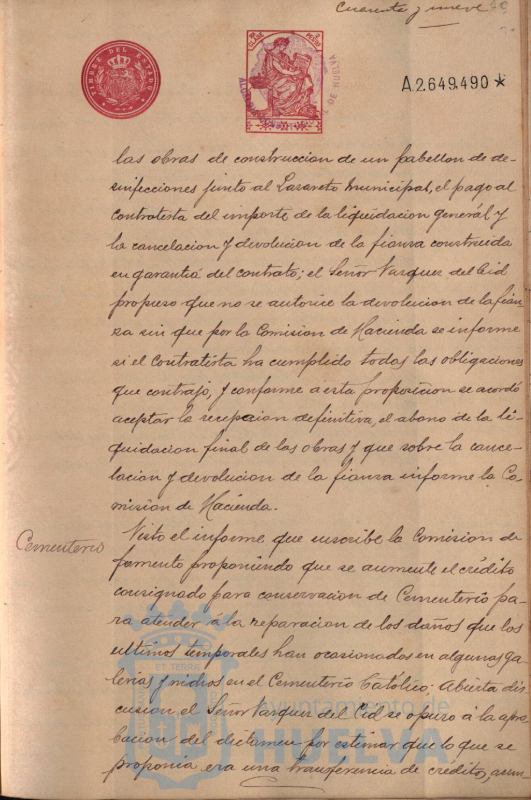 Cuarenta y nueve
TIMBRE DEL ESTADO
CLASE
PESO
A.2.649.490
las obras de construccion de un pabellon de de-
sinfecciones junto al Lazareto Municipal, el pago al
contratista del importe de la liquidacion general y
la cancelacion y devolucion de la fianza construida
en garantia del contrato; el Señor Vazquez del Cid
propuso que no se autorice la devolucion de la fian
za sin que por la Comision de Hacienda se informe
si el Contratista ha cumplido todas las obligaciones
que contrajo, y conforme á esta proposicion se acordó
aceptar la recepcion definitiva, el abono de la li-
quidacion final de las obras y que sobre la cance-
lacion y devolucion de la fianza informe la Co-
mision de Hacienda.
Cementerio
Visto el informe que suscribe la Comision de
fomento proponiendo que se aumente el crédito
consignado para conservacion de Cementerio pa-
ra atender á la reparacion de los daños que los
ultimos temporales han ocasionados en algunas ga
lerias y nichos en el Cementerio Catolico; Abierta dis
cusion el Señor Vazquez del Cid se opuso á la apro
bacion del dictamen por estimar que lo que se
proponia era una transferencia de crédito, aun-
ET TERRA
Ayuntamiento de
HUELVA